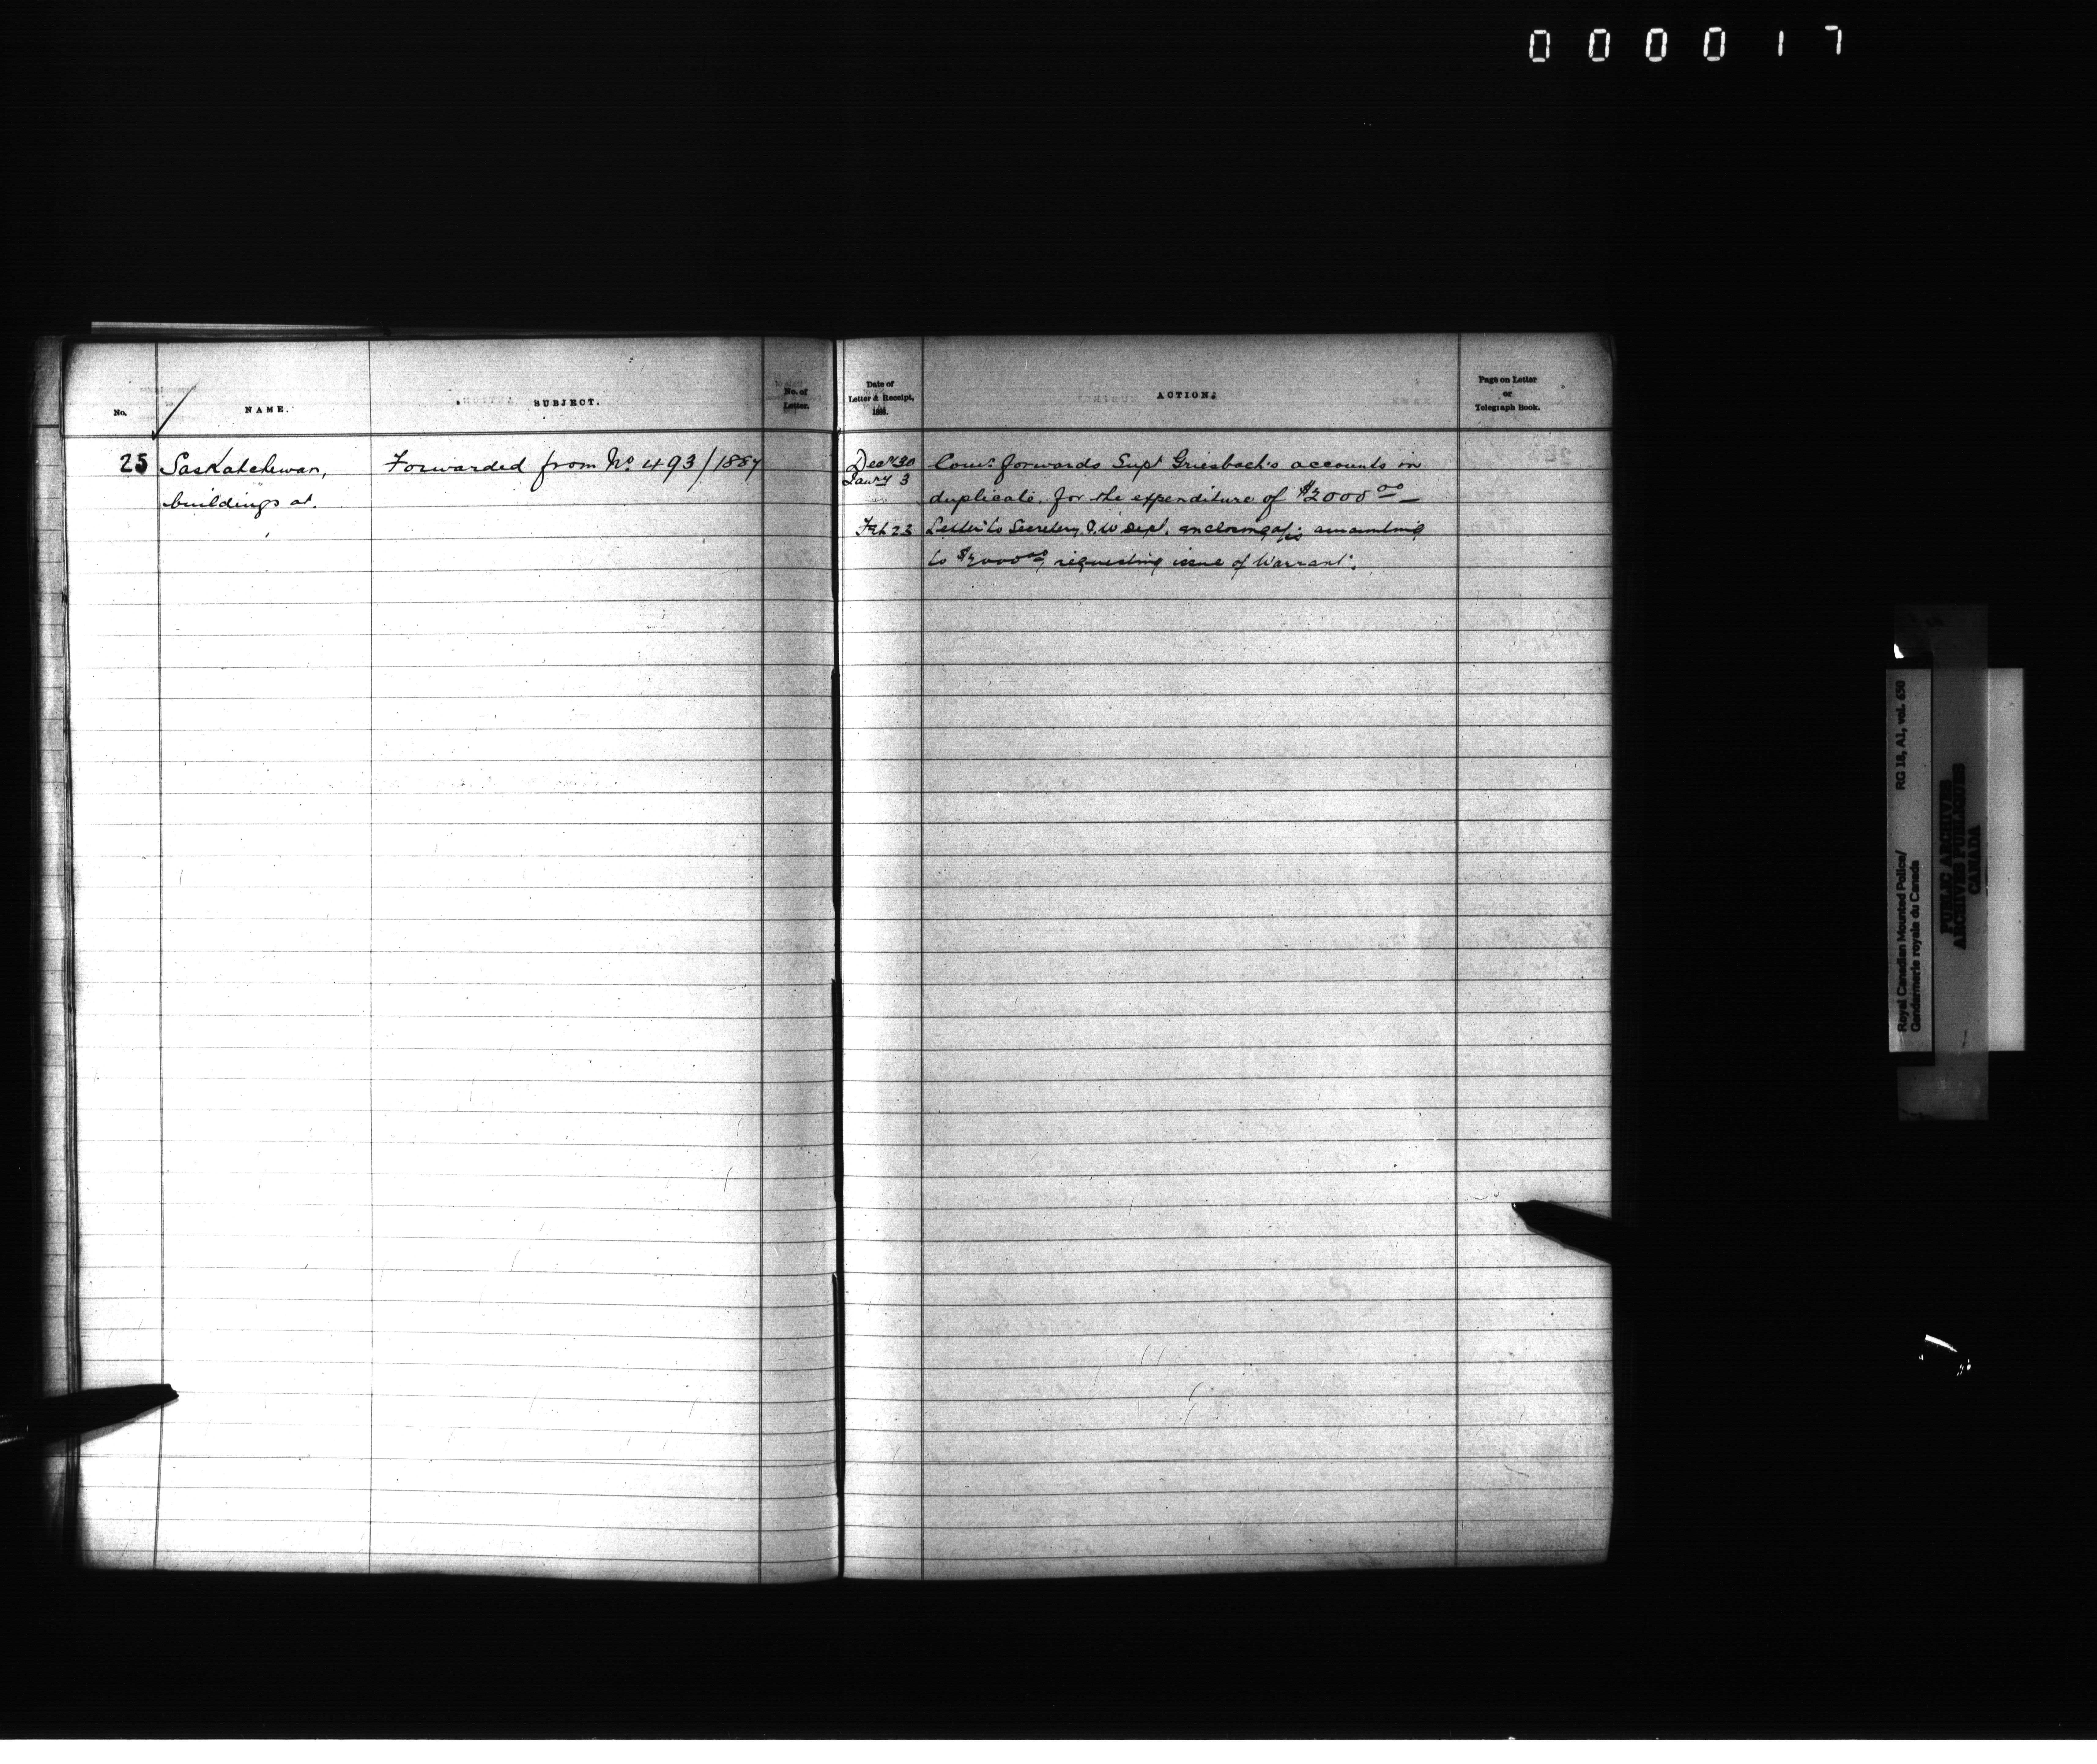 000017
No.
NAME.
SUBJECT.
No. of
Letter.
Date of
Letter & Receipt,
1888.
ACTION.
Page on Letter
or
Telegraph Book.
25
Saskatchewan,
buildings at.
Forwarded from No. 493/1887
Decr 30
Jany 3
Comr. forwards Supt Griesbach's accounts in
duplicate for the expenditure of $2000 00
Feb 23
Letter to Secretary P.W Dept. enclosing amounting
to requesting issue of Warrant.
Royal Canadian Mounted Police/
Gendarmerie royale du Canada
RG 18, A1, vol. 650
PUBLIC ARCHIVES
ARCHIVES PUBLIQUES
CANADA